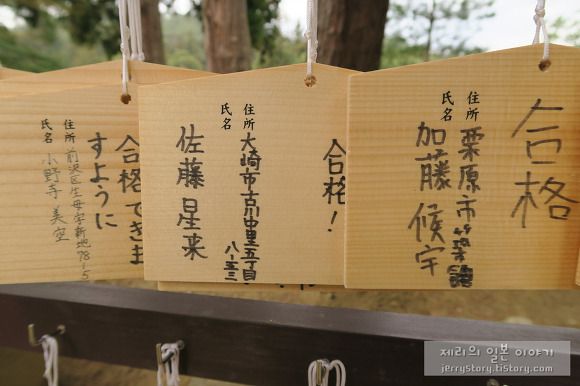 合格
住所 栗原市築館
氏名 加藤候宇
合格!
住所 大崎市古川中里五丁目
八-五三
氏名 佐藤星来
合格できま
すように
住所 前沢区生母字新地78-5
氏名 小野寺美空
제리의 일본 이야기
jerrystory.tistory.com